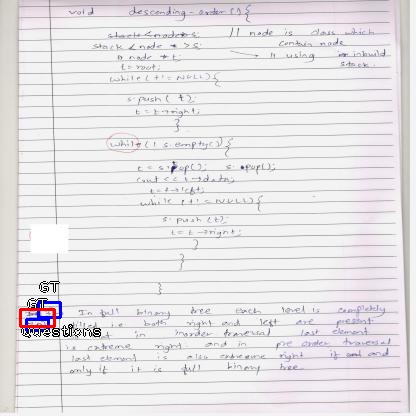 void descending-order() {
stack<node> s; // node is class which
stack < node * > s; contain node
node *t; // using inbuild
t = root; stack.
while (t != NULL) {
s.push( t);
t = t->right;
}
while (! s.empty()) {
t = s.top(); s.pop();
cout << t->data;
t = t->left;
while (t != NULL) {
s.push(t);
t = t->right;
}
}
}
GT
GT
Questions
In full binary tree each level is completely
filled i.e. both right and left are present
in inorder traversal last element
is extreme right. and in pre order traversal
last element is also extreme right if and
only if it is full binary tree